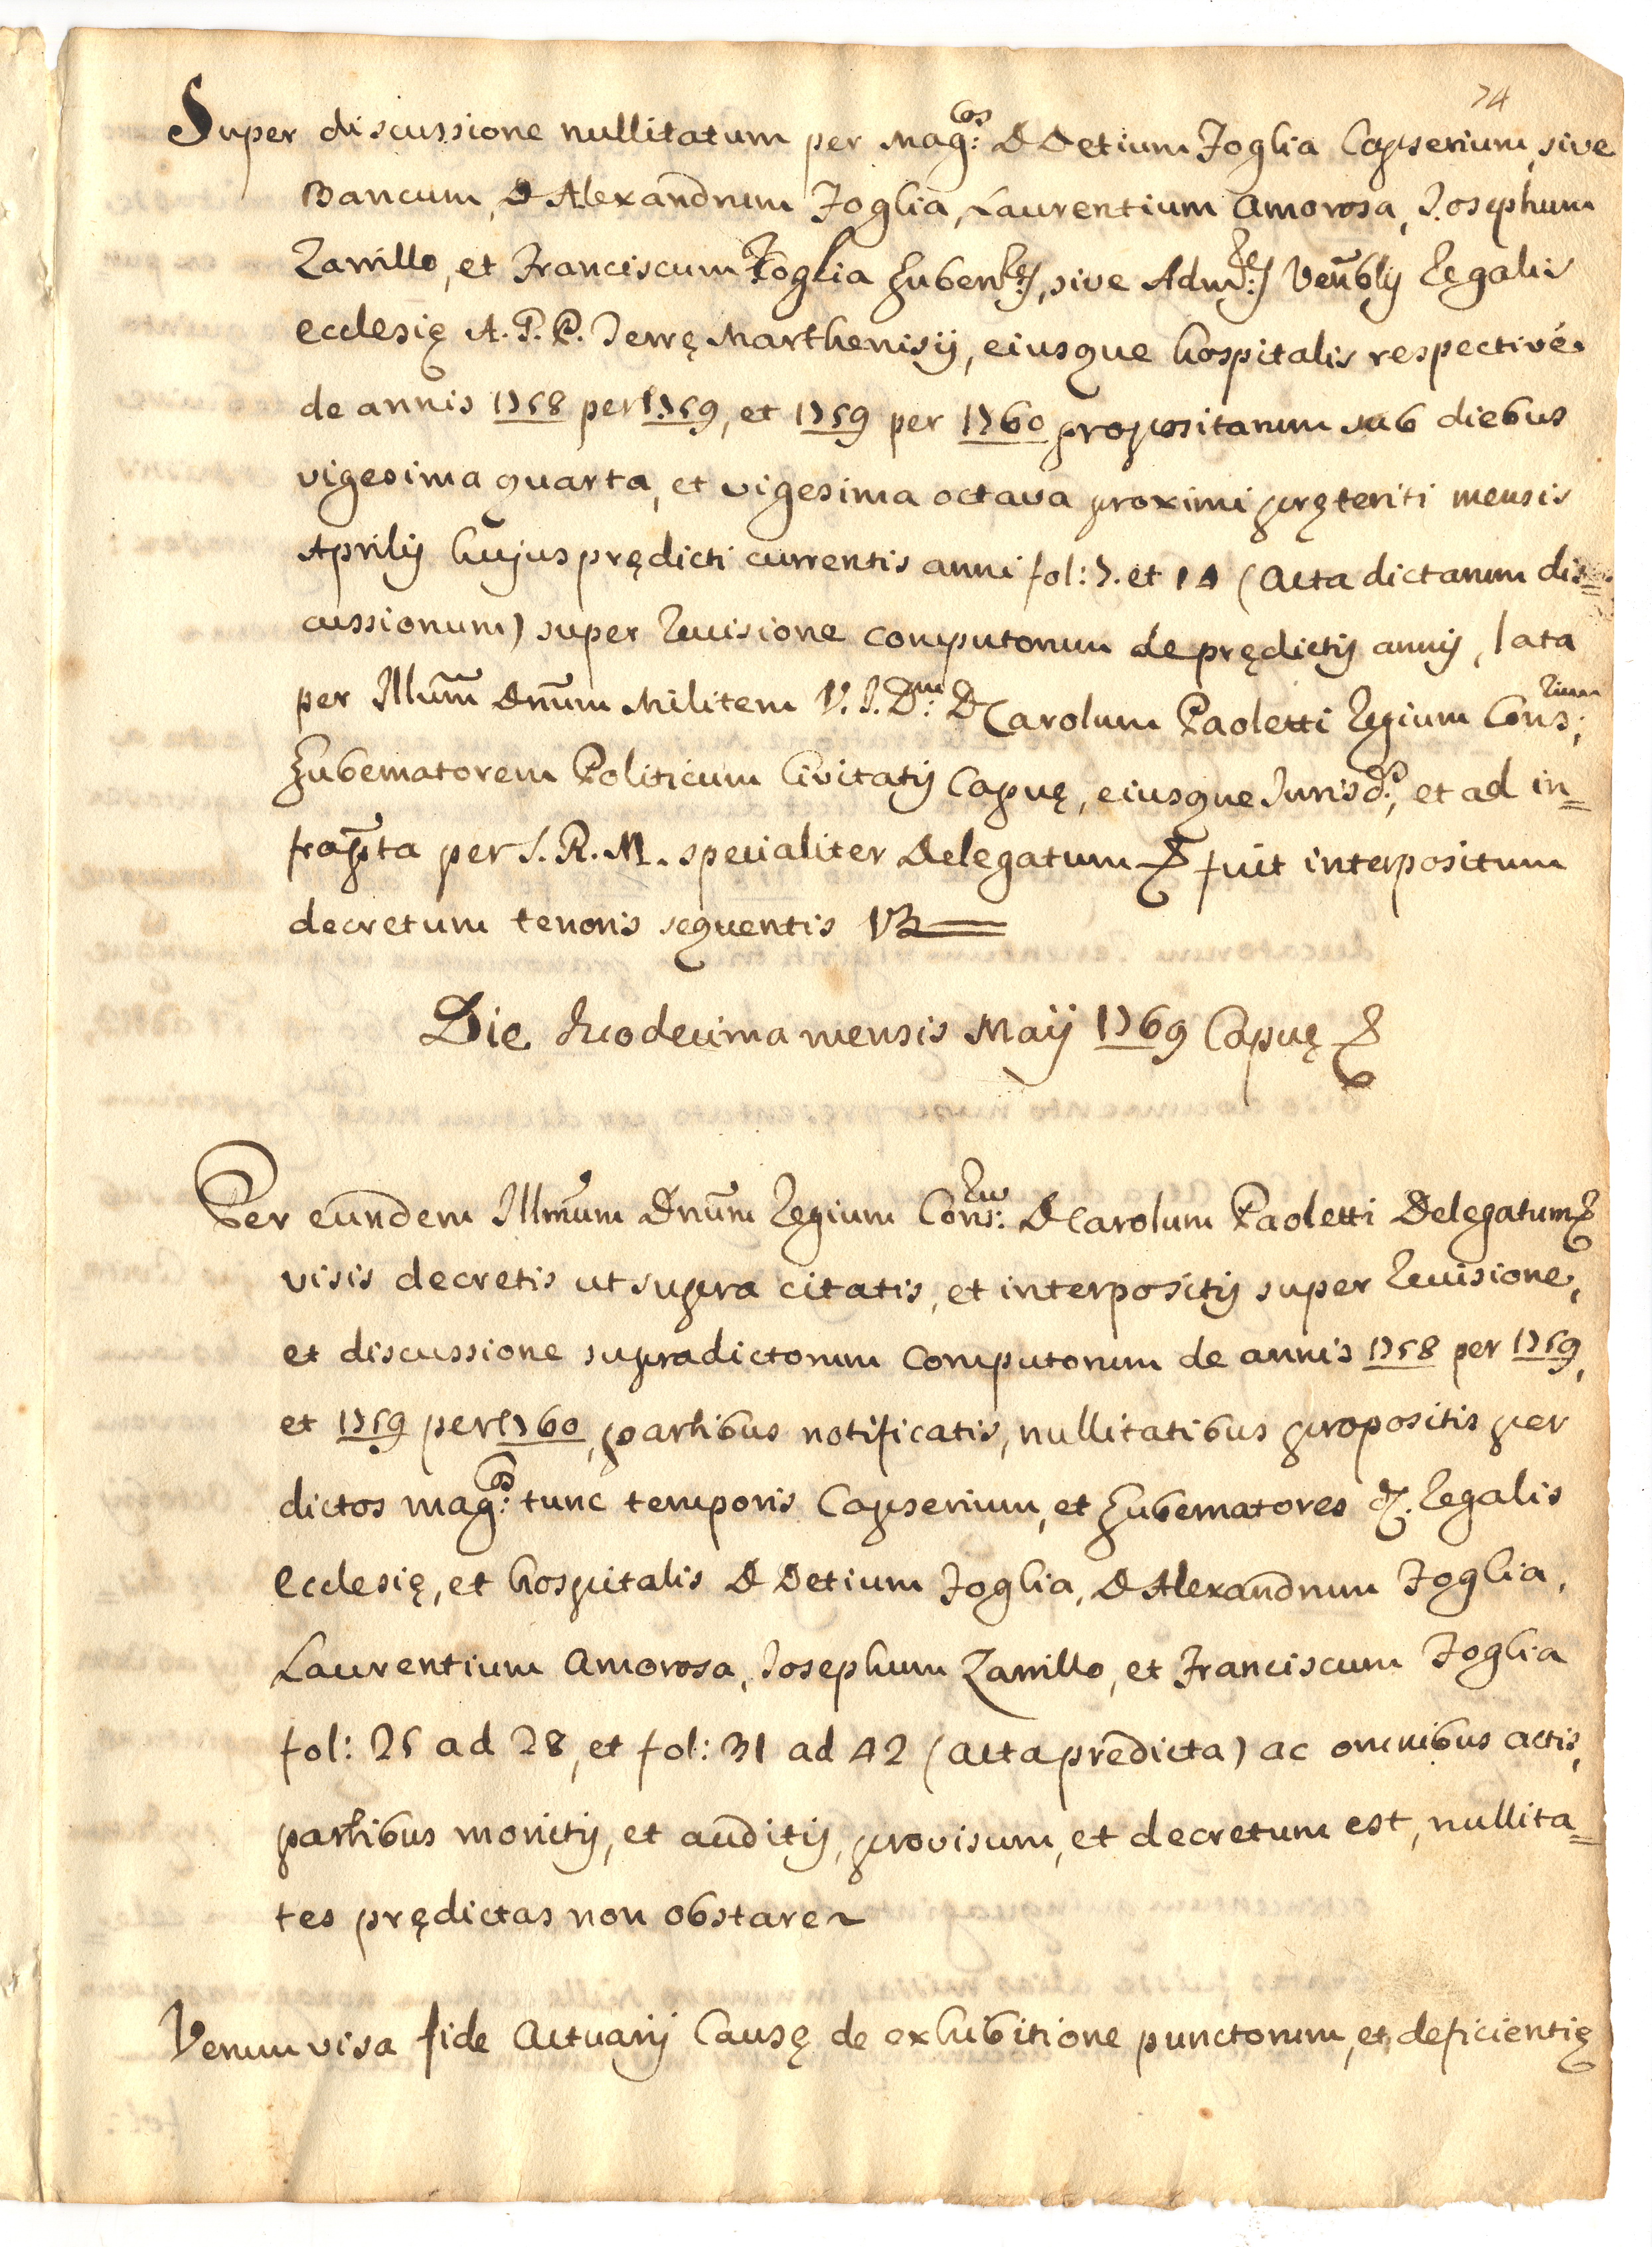 74
Super discussione nullitatum per Mag:cos D Detium Foglia Capserium, sive
Bancum, D Alexandrum Foglia, Laurentium Amorosa, Josephum
Zarrillo, et Franciscum Foglia Guber:res, sive Adm:res Venblis Regalis
ecclesię A. P. P. Terrę Marthenisij, eiusque hospitalis respectivé
de annis 1758 per 1759, et 1759 per 1760 propositarum sub diebus
vigesima quarta, et vigesima octava proximi pręteriti mensis
Aprilis hujus prędicti currentis anni fol: 7. et 14 (Acta dictarum dis=
cussionum) super Revisione computorum de prędictis annis, lata
per Illum Dnum Militem V. J. D:m D Carolum Paoletti Regium Cons:rium
Gubernatorem Politicum Civitatis Capuę, eiusque Jurisd:s, et ad in=
frapta per S. R. M. specialiter Delegatum & fuit interpositum
decretum tenoris sequentis Vz
Die duodecima mensis Maij 1769 Capuę &
Per eundem Illmum Dnum Regium Cons:rium D Carolum Paoletti Delegatum &
visis decretis ut supra citatis, et interpositis super Revisione,
et discussione supradictorum Computorum de annis 1758 per 1759,
et 1759 per 1760, partibus notificatis, nullitatibus propositis per
dictos mag:cos tunc temporis Capserium, et Gubernatores d. Regalis
Ecclesię, et hospitalis D Detium Foglia, D Alexandrum Foglia,
Laurentium Amorosa, Josephum Zarrillo, et Franciscum Foglia
fol: 25 ad 28, et fol: 31 ad 42 (acta predicta) ac omnibus actis,
partibus monitis, et auditis, provisum, et decretum est, nullita=
tes prędictas non obstare
Verum visa fide Actuarij Causę de exhibitione punctorum, et deficientię